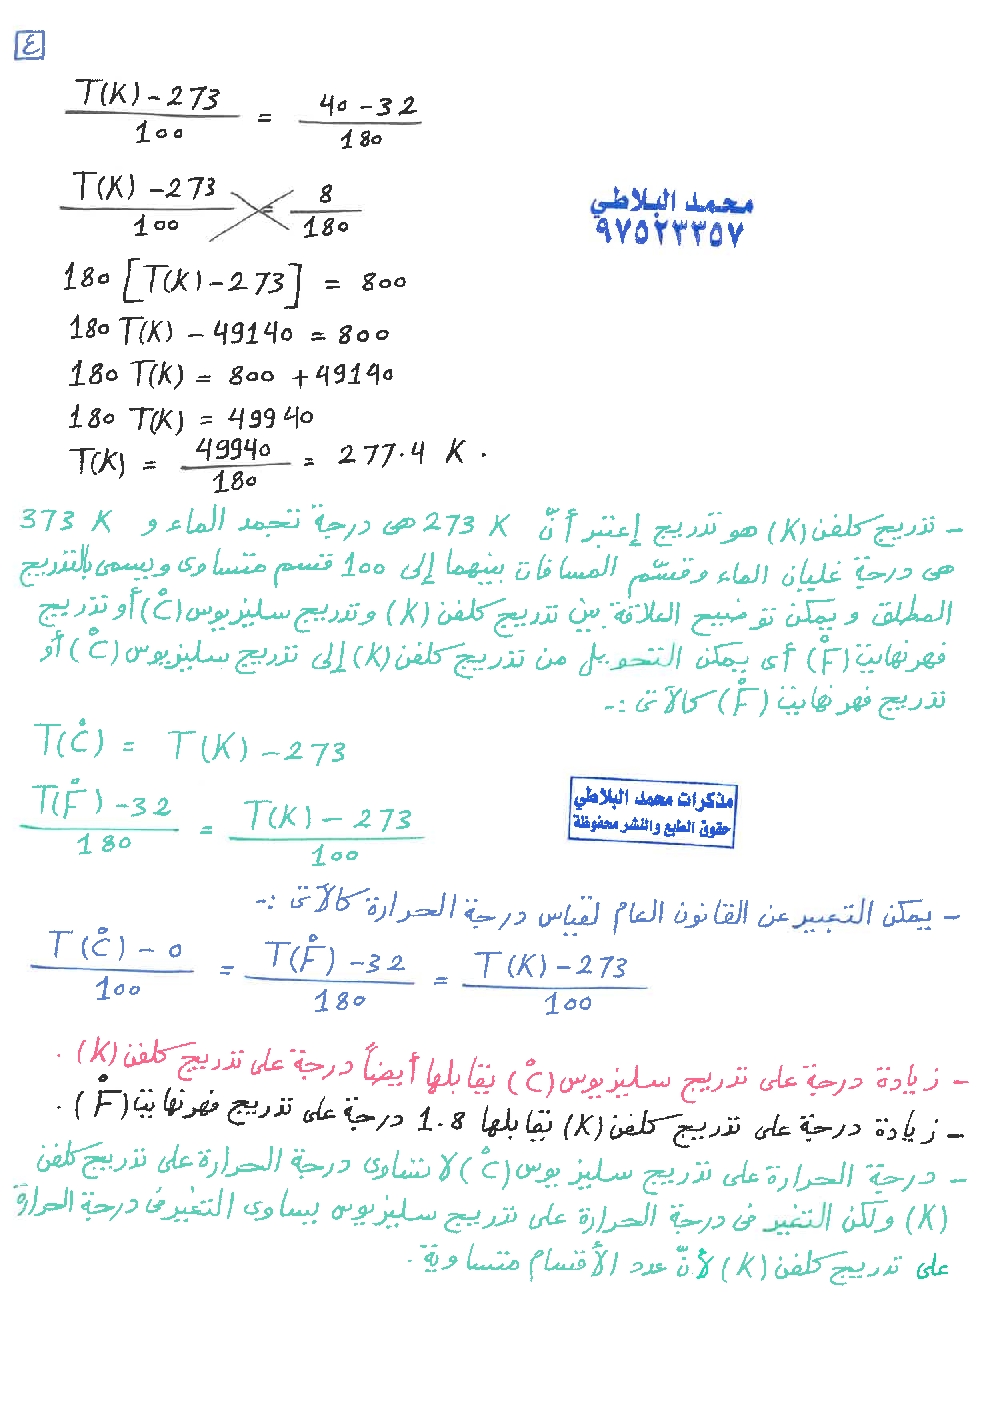 ٤
T(K) - 273 / 100 = 40 - 32 / 180
T(K) - 273 / 100 = 8 / 180
محمد البلاطي
٩٧٥٢٣٣٥٧
180 [T(K) - 273] = 800
180 T(K) - 49140 = 800
180 T(K) = 800 + 49140
180 T(K) = 49940
T(K) = 49940 / 180 = 277.4 K .
- تدريج كلفن (K) هو تدريج إعتبر أنّ 273 K هى درجة تجمد الماء و 373 K
هى درجة غليان الماء وقسّم المسافات بينهما إلى 100 قسم متساوى ويسمى بالتدريج
المطلق و يمكن توضيح العلاقة بين تدريج كلفن (K) وتدريج سليزيوس (C°) أو تدريج
فهرنهايت (F°) أى يمكن التحويل من تدريج كلفن (K) إلى تدريج سليزيوس (C°) أو
تدريج فهرنهايت (F°) كالآتى :-
T(C°) = T(K) - 273
T(F°) - 32 / 180 = T(K) - 273 / 100
مذكرات محمد البلاطي
حقوق الطبع والنشر محفوظة
- يمكن التعبير عن القانون العام لقياس درجة الحرارة كالآتى :-
T(C°) - 0 / 100 = T(F°) - 32 / 180 = T(K) - 273 / 100
- زيادة درجة على تدريج سليزيوس (C°) يقابلها أيضاً درجة على تدريج كلفن (K) .
- زيادة درجة على تدريج كلفن (K) يقابلها 1.8 درجة على تدريج فهرنهايت (F°) .
- درجة الحرارة على تدريج سليزيوس (C°) لا تساوى درجة الحرارة على تدريج كلفن
(K) ولكن التغير فى درجة الحرارة على تدريج سليزيوس يساوى التغير فى درجة الحرارة
على تدريج كلفن (K) لأنّ عدد الأقسام متساوية .